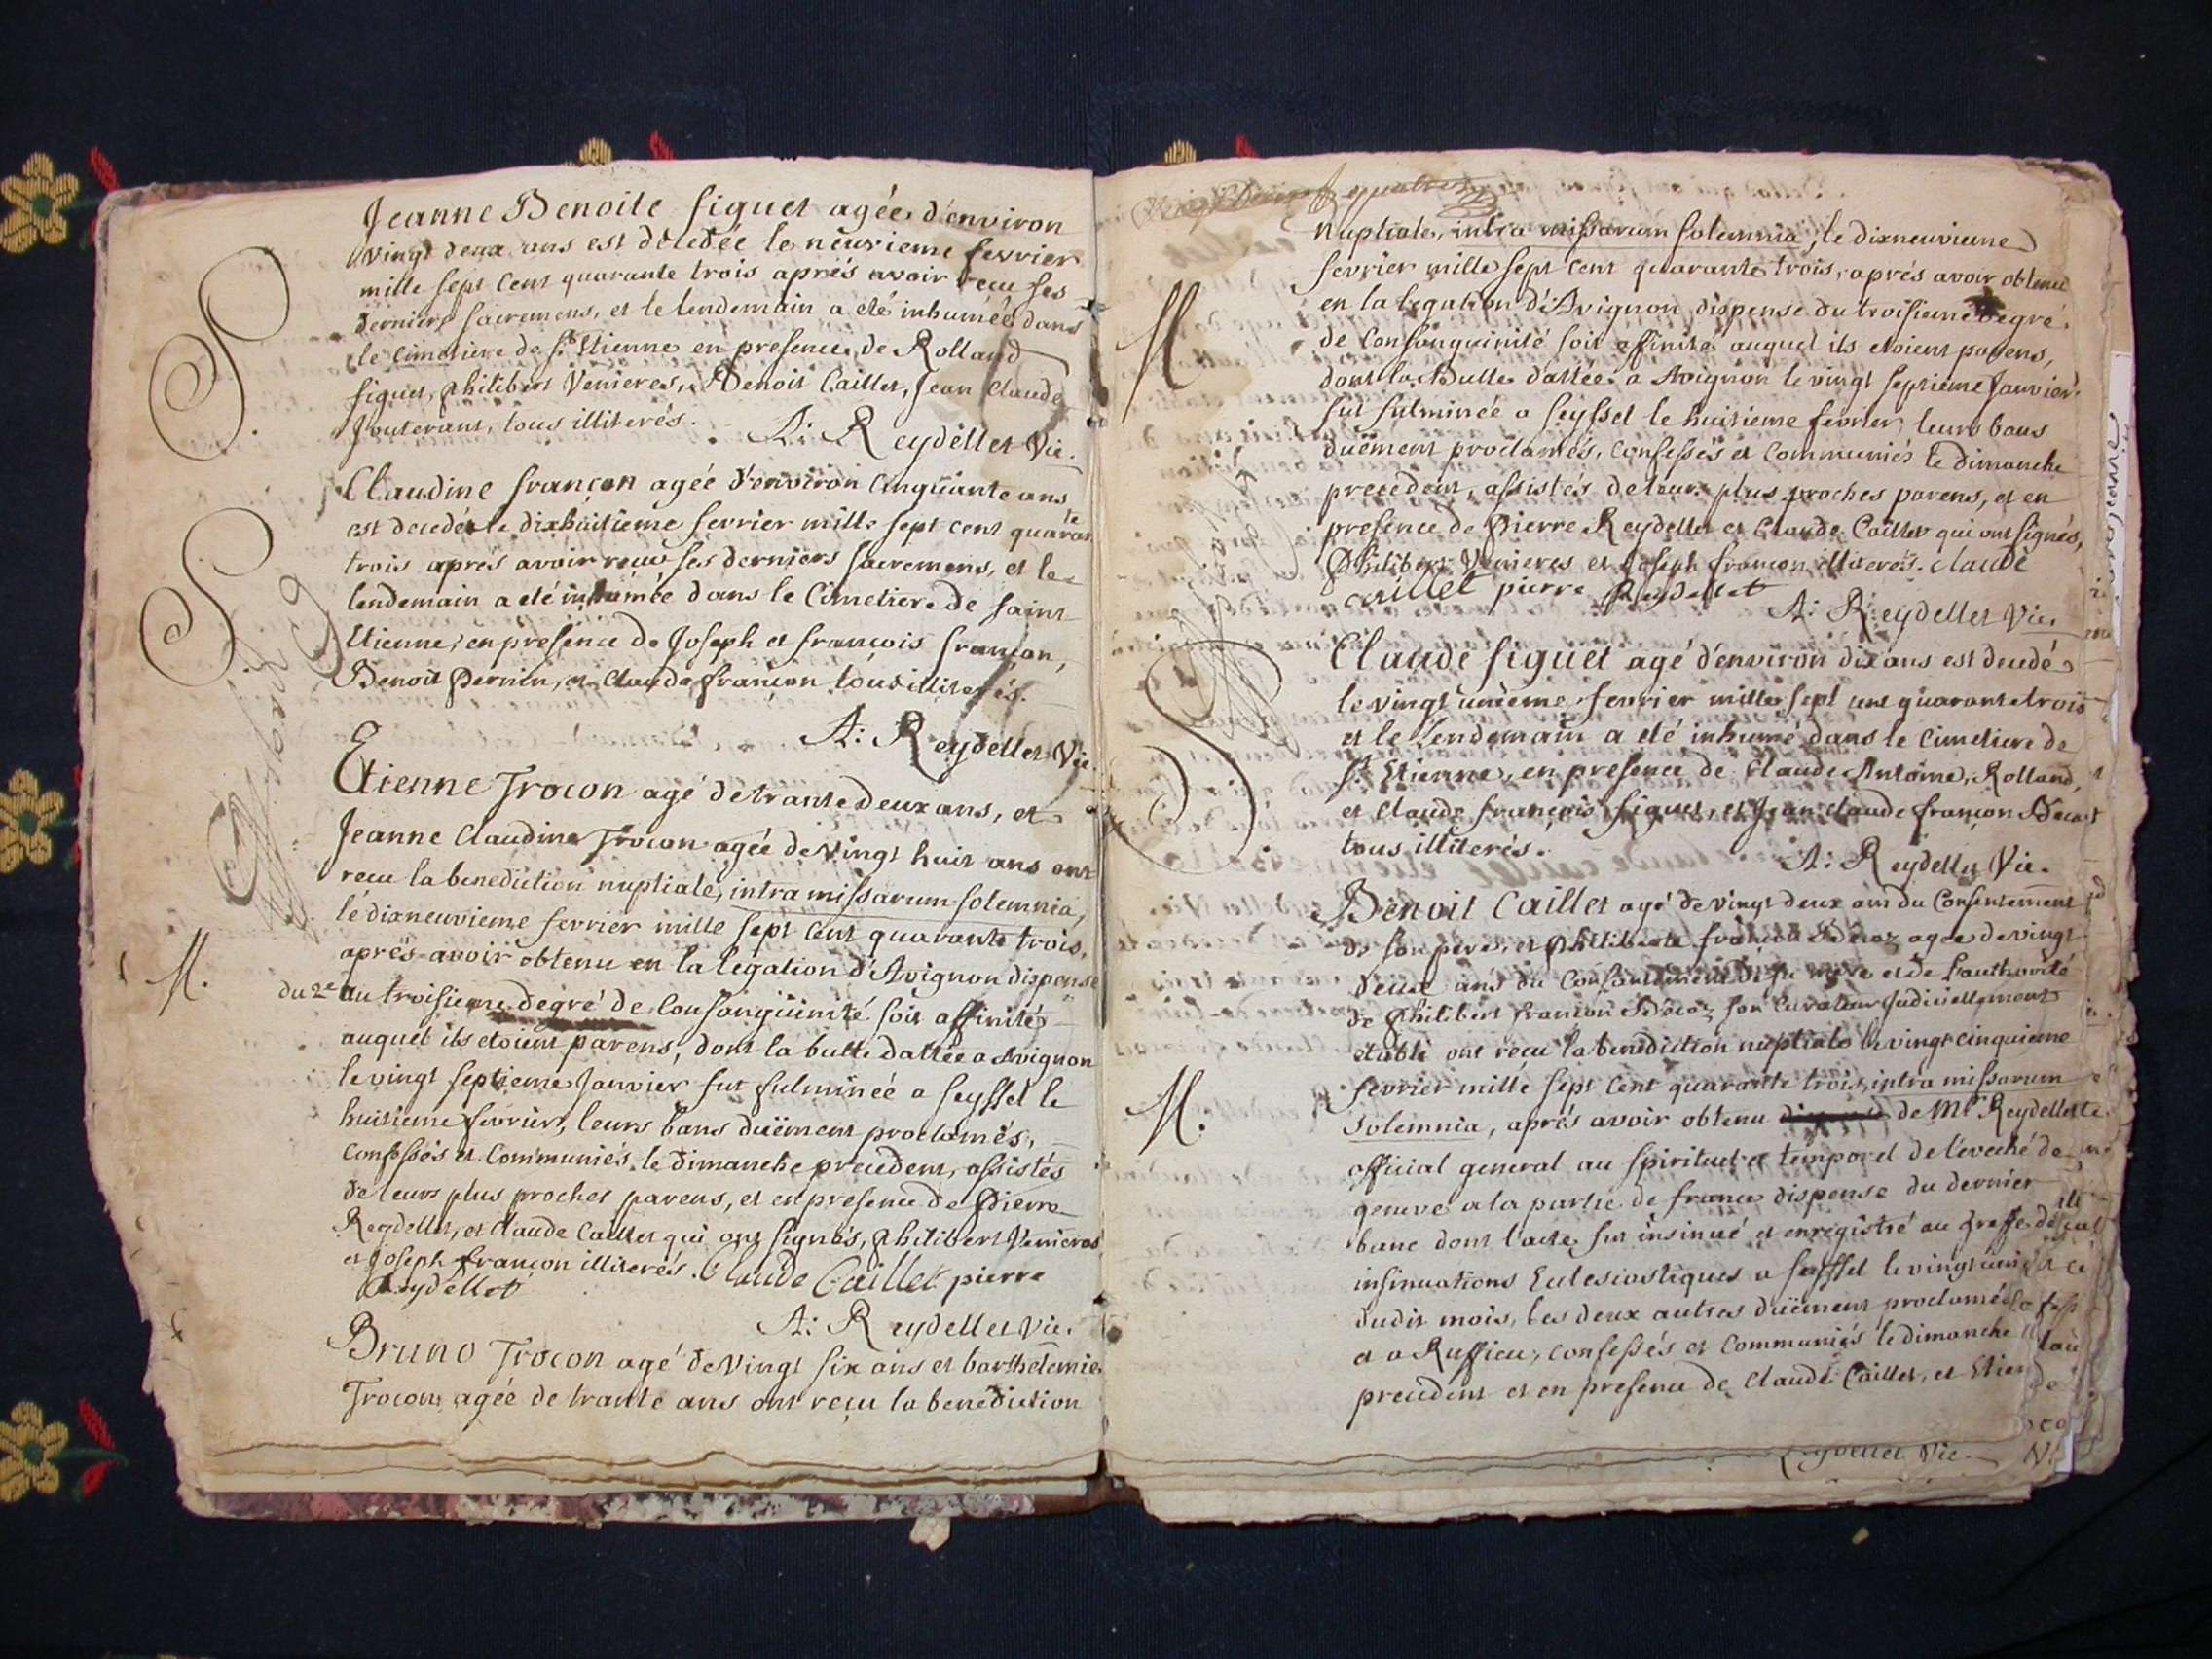 Jeanne Benoite figuet agée d'environ
vingt deux ans est décedée le neuvieme fevrier
mille sept cent quarante trois aprés avoir recu ses
derniers sacremens, et le lendemain a eté inhumée dans
le cimetiere de St Etienne en presence de Rolland
figuet, philibert Venieres, Benoit Caillet, Jean Claude
Jouterant, tous illiterés.
A: Reydellet Vic.
S.
Claudine françon agée d'environ cinquante ans
est decedée le dixhuitieme fevrier mille sept cent quaran te
trois aprés avoir recu ses derniers sacremens, et le
lendemain a eté inhumée dans le Cimetiere de saint
Etienne, en presence de Joseph et françois françon,
Benoit Pernin, et Claude françon tous illiterés.
A: Reydellet Vic.
S
Etienne Trocon agé de trante deux ans, et
Jeanne Claudine Trocon agée de vingt huit ans ont
recu la benediction nuptiale, intra missarum solemnia,
le dixneuvieme fevrier mille sept cent quarante trois,
aprés avoir obtenu en la legation d'Avignon dispense
du 2e au troisieme degré de Consanguinité soit affinité
auquel ils etoient parens, dont la bulle dattée a Avignon
le vingt septieme Janvier fut fulminée a seyssel le
huitieme fevrier, leurs bans duëment proclamés,
confessés et communiés le dimanche precedent, assistés
de leurs plus proches parens, et en presence de Pierre
Reydellet, et Claude Caillet qui ont signés, philibert Venieres
et Joseph françon illiterés. Claude Caillet pierre
Reydellet
A: Reydellet Vic.
M.
Bruno Trocon agé de vingt six ans et barthelemie
Trocon agée de trante ans ont reçu la benediction
nuptiale, intra missarum solemnia, le dixneuvieme
fevrier mille sept cent quarante trois, aprés avoir obtenu
en la legation d'Avignon dispense du troisieme degré
de Consanguinité soit affinité auquel ils etoient parens,
dont la bulle dattée a Avignon le vingt septieme Janvier
fut fulminée a seyssel le huitieme fevrier, leurs bans
duëment proclamés, confessés et communiés le dimanche
precedent, assistés de leurs plus proches parens, et en
presence de Pierre Reydellet et Claude Caillet qui ont signés,
Philibert Venieres et Joseph françon illiterés. claude
caillet pierre Reydellet
A: Reydellet Vic.
M
Claude figuet agé d'environ dix ans est decedé
le vingt unieme fevrier mille sept cent quarante trois
et le lendemain a eté inhumé dans le cimetiere de
St Etienne, en presence de Claude Antoine, Rolland,
et Claude françois figuet, et Jean claude françon
tous illiterés.
A: Reydellet Vic.
S
Benoit Caillet agé de vingt deux ans du Consentement
de son pere, et philiberte françon agée de vingt
deux ans du Consentement de sa mere et de l'authorité
de Philibert françon son Curateur Judiciellement
etabli ont recu la benediction nuptiale le vingt cinquieme
fevrier mille sept cent quarante trois intra missarum
solemnia, aprés avoir obtenu de Mr Reydellet
official general au spirituel et temporel de l'eveché de
geneve a la partie de france dispense du dernier
banc dont l'acte fut insinué et enregistré au greffe des
insinuations Eclesiastiques a seyssel le vingt
dudit mois, les deux autres duëment proclamés
et a Ruffieu, confessés et communiés le dimanche
precedent et en presence de Claude Caillet, et
M.
Reydellet Vic.